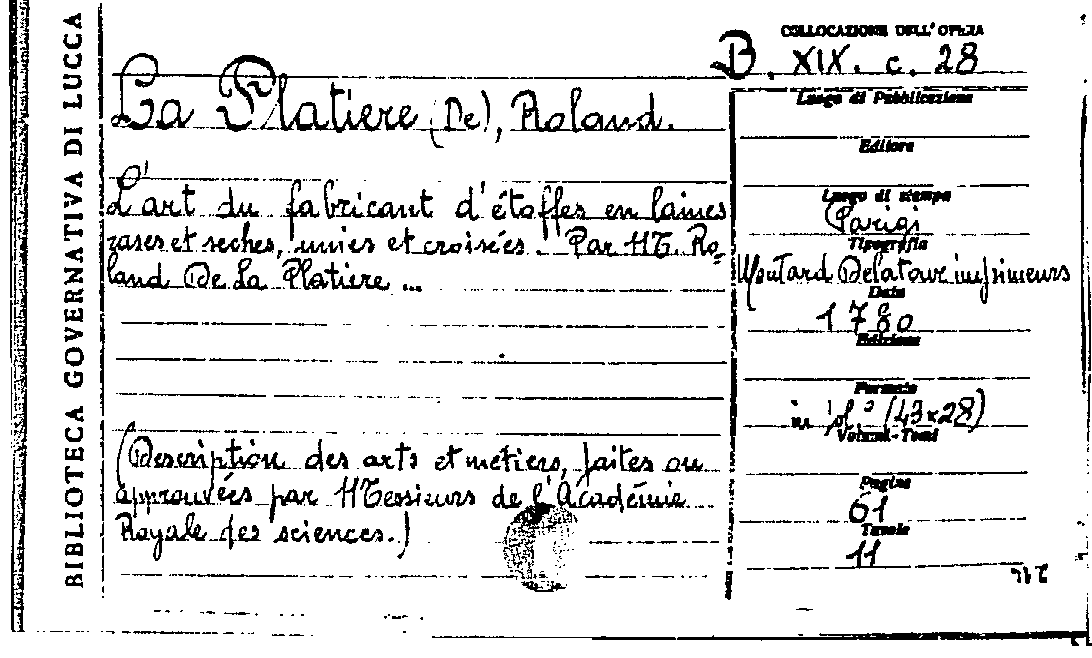 BIBLIOTECA GOVERNATIVA DI LUCCA
COLLOCAZIONE DELL'OPERA
B. XIX. c. 28
La Platiere (De), Roland.
L'art du fabricant d'étoffes en laines
rases et seches, unies et croisées. Par M. Ro=
land De La Platiere ...
(Description des arts et métiers, faites ou
approuvées par Messieurs de l'Académie
Royale des sciences.)
Luogo di Pubblicazione
Editore
Luogo di stampa
Parigi
Tipografia
Moutard Delatour imprimeurs
Data
1780
Edizione
Formato
in fol° (43x28)
Volumi-Tomi
Pagine
61
Tavole
11